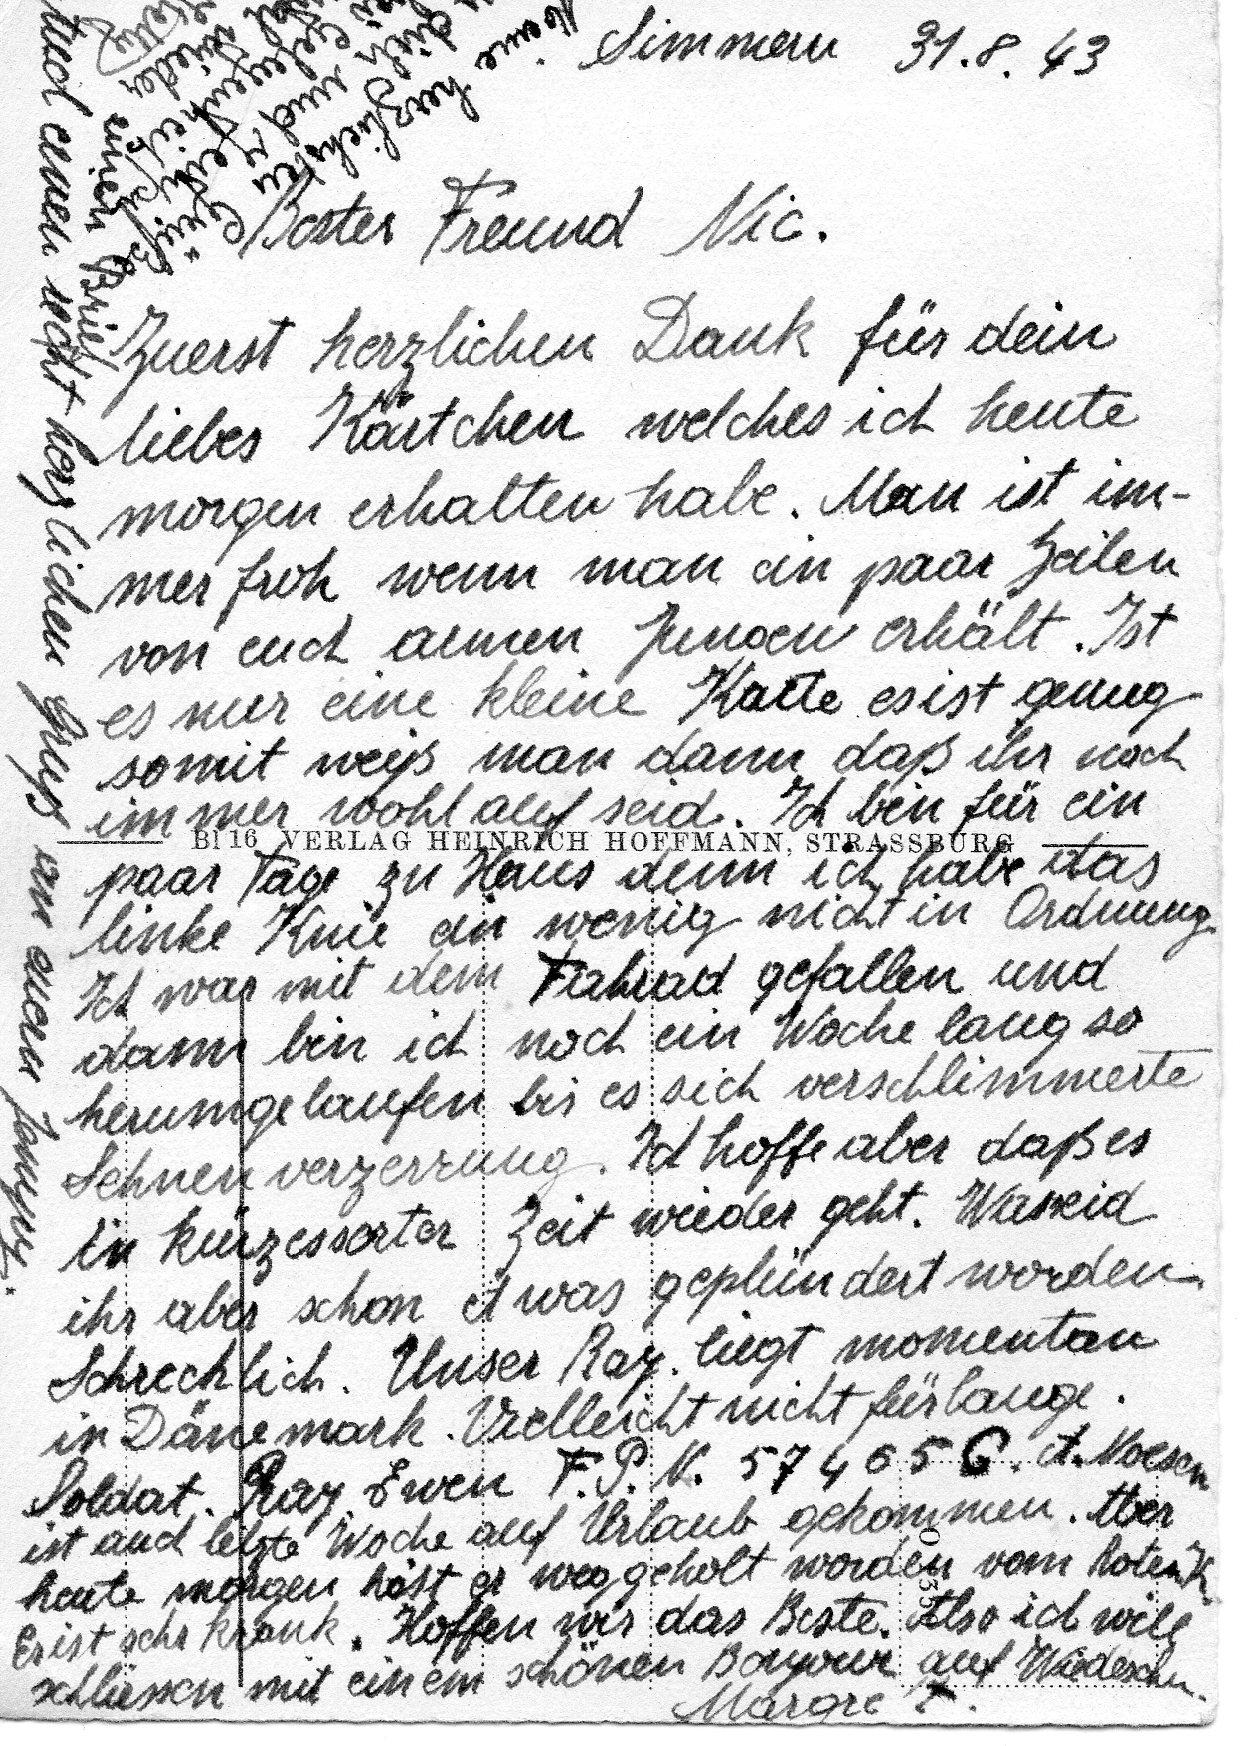 Simmern 31.8.43
Bester Freund Nic.
Zuerst herzlichen Dank für dein
liebes Kärtchen welches ich heute
morgen erhalten habe. Man ist im-
mer froh wenn man ein paar Zeilen
von euch armen Jungen erhält. Ist
es nur eine kleine Karte es ist genug
somit weiß man dann daß ihr noch
immer wohl auf seid. Ich bin für ein
Bl 16 VERLAG HEINRICH HOFFMANN, STRASSBURG
paar Tage zu Haus denn ich habe das
linke Knie ein wenig nicht in Ordnung.
Ich war mit dem Fahrad gefallen und
dann bin ich noch ein Woche lang so
herumgelaufen bis es sich verschlimmerte
Sehnenverzerrung. Ich hoffe aber daß es
in kürzessester Zeit wieder geht. Was seid
ihr aber schon etwas geplündert worden.
Schrecklich. Unser Ray. liegt momentan
in Dänemark. Vielleicht nicht für lange.
Soldat. Ray. Ewen F.P.N. 57465 C. A. Moesen
ist auch letzte Woche auf Urlaub gekommen. Aber
heute morgen ist er weggeholt worden vom Roten K.
Er ist sehr krank. Hoffen wir das Beste. Also ich will
schliessen mit einem schönen Bonjour auf Wiedesehn.
Margre F.
und einen recht herzlichen Gruß von
herzlichsten Grüße
dich und
Gelegenheit
wieder einen Brief